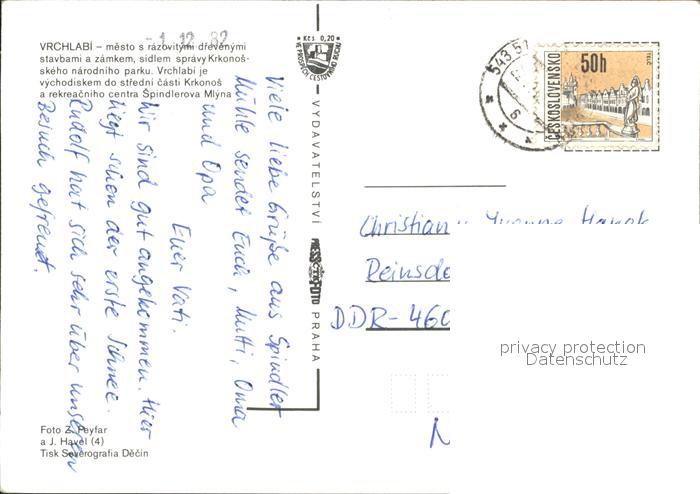 - 1. 12. 82
VRCHLABÍ – město s rázovitými dřevěnými
stavbami a zámkem, sídlem správy Krkonoš-
ského národního parku. Vrchlabí je
východiskem do střední části Krkonoš
a rekreačního centra Špindlerova Mlýna
Viele liebe Grüße aus Spindler
Mühle sendet Euch, Mutti, Oma
und Opa
Euer Vati.
Wir sind gut angekommen. Hier
liegt schon der erste Schnee.
Rudolf hat sich sehr über unseren
Besuch gefreut.
Foto Z. Peyfar
a J. Havel (4)
Tisk Severografia Děčín
VYDAVATELSTVÍ
PRESSFOTO
PRAHA
Kčs 0,20
543 51
ČESKOSLOVENSKO
50h
TELČ
Christian Yvonne
Reinsdo
DDR-460
privacy protection
Datenschutz